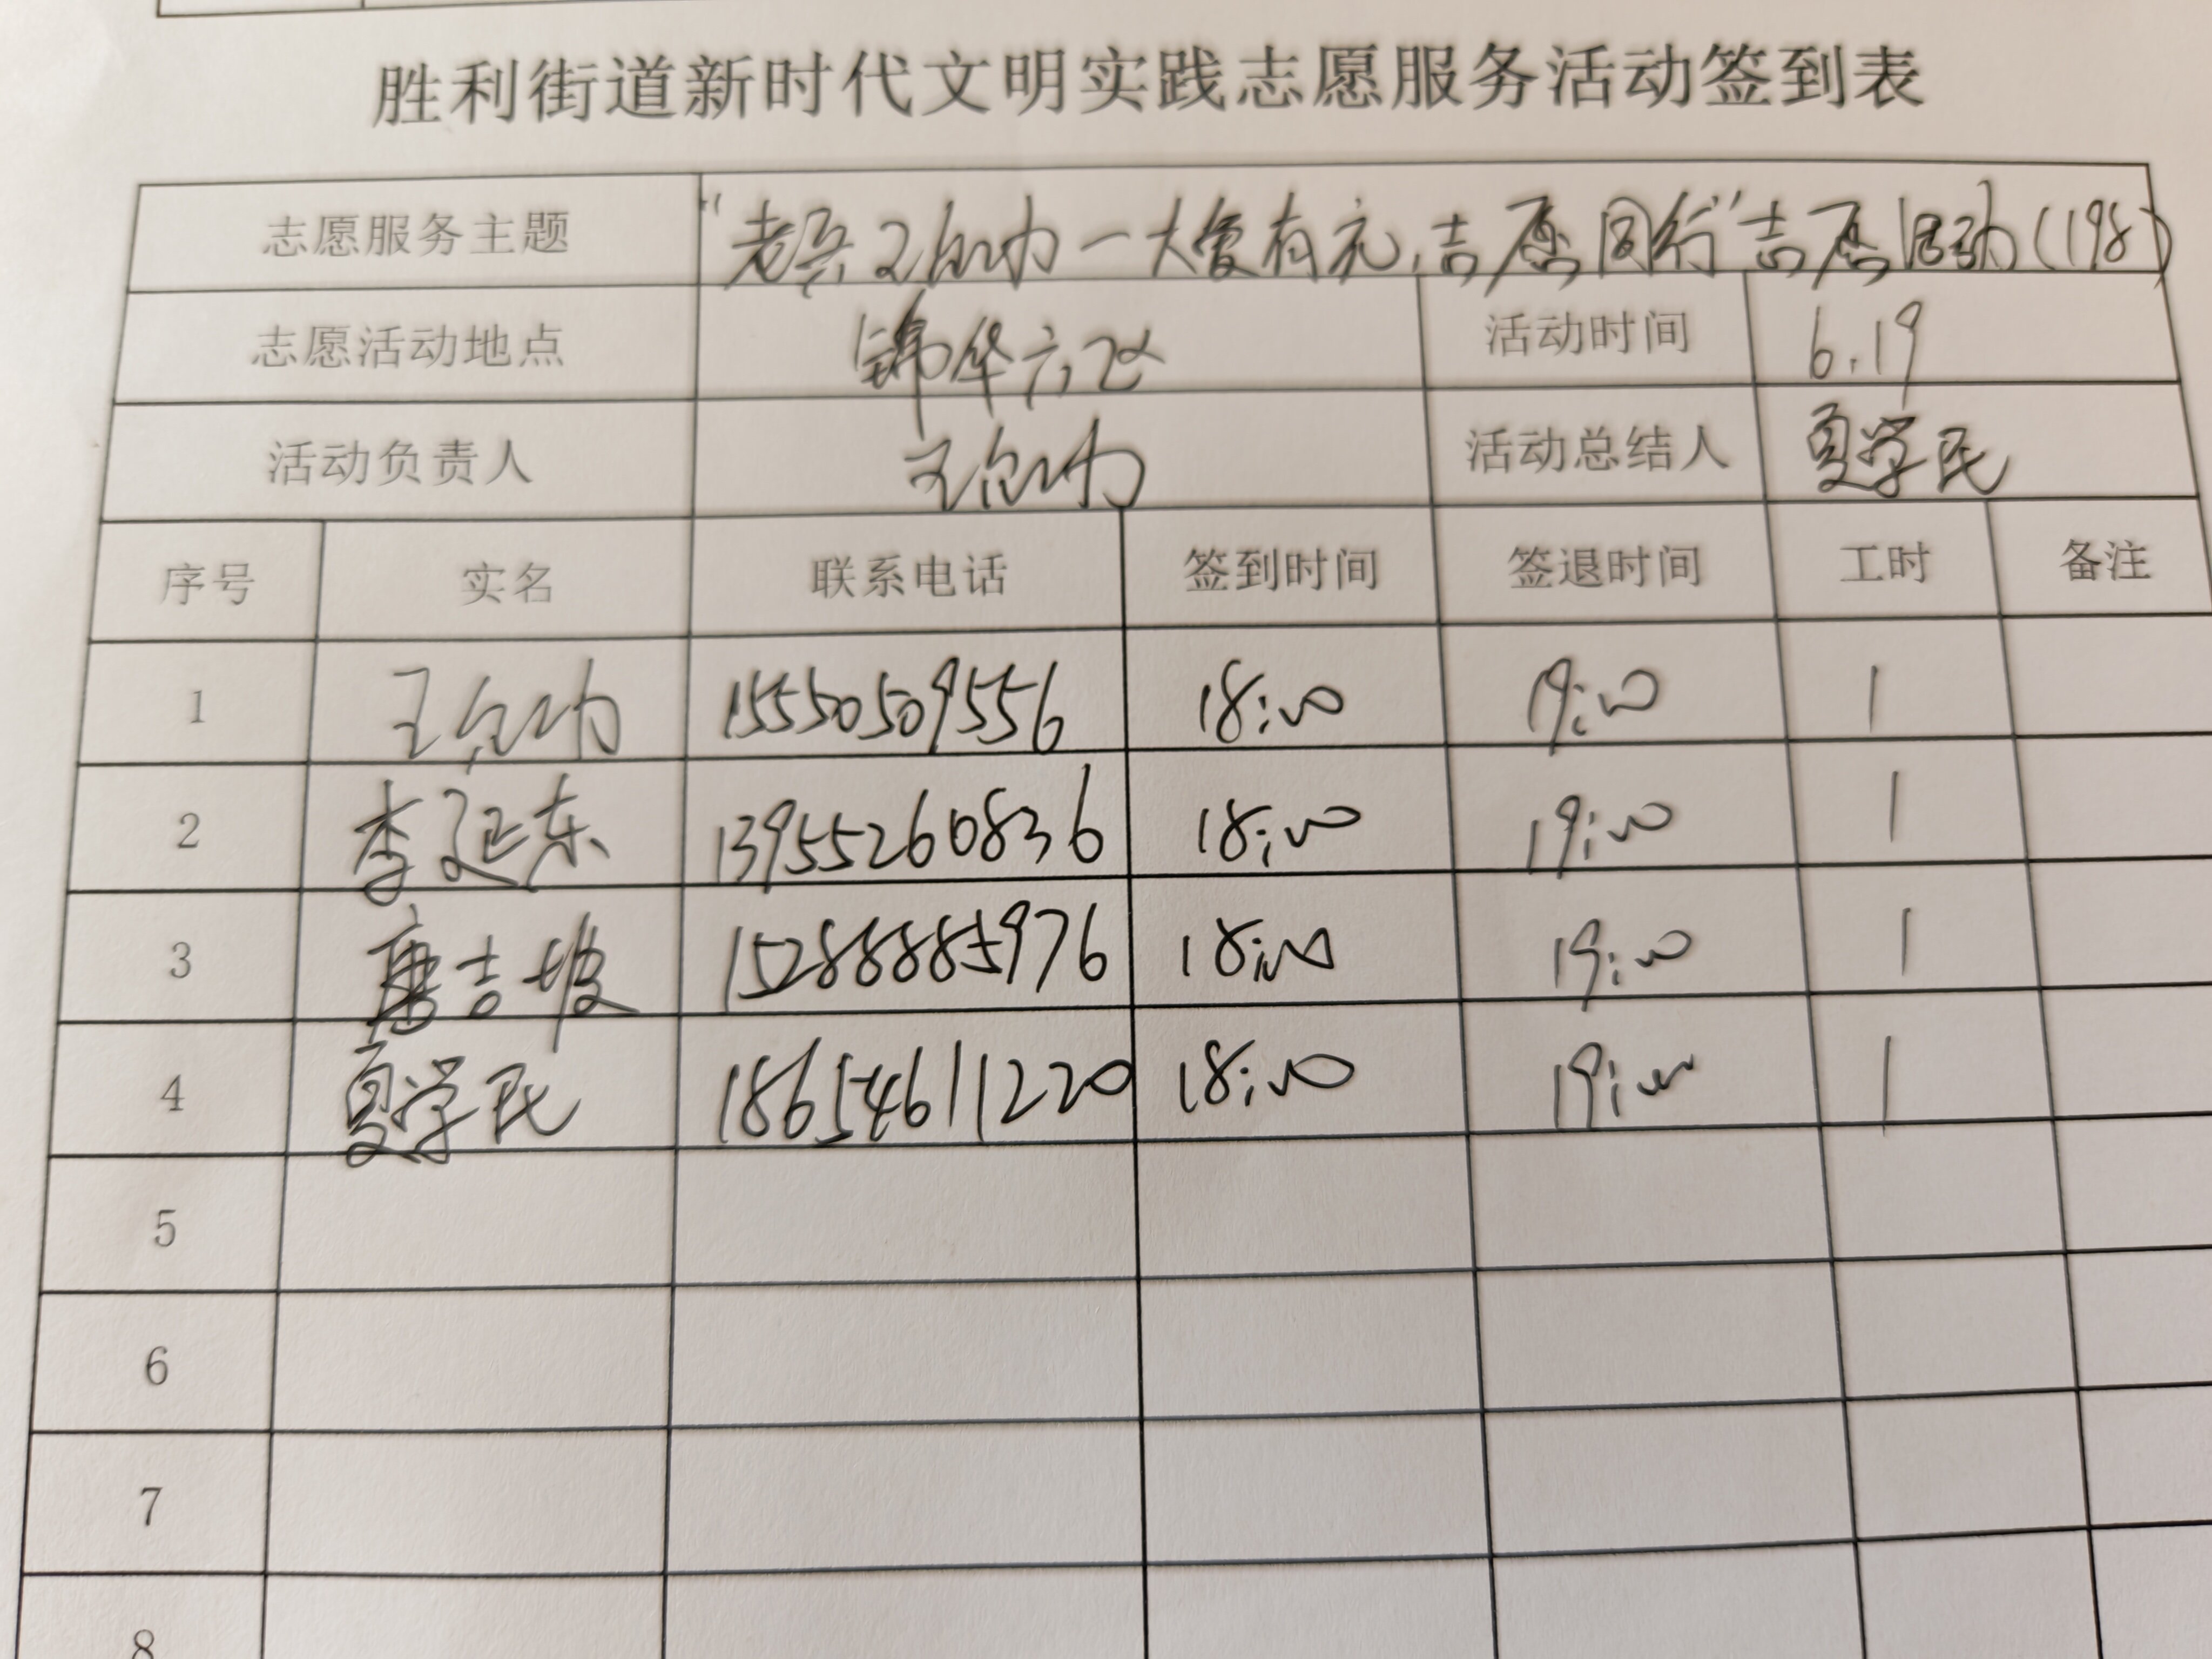 胜利街道新时代文明实践志愿服务活动签到表
志愿服务主题 "老兵 一大爱有元，志愿同行"志愿活动（198）
志愿活动地点 锦华六区 活动时间 6.19
活动负责人 王 活动总结人 夏学民
序号 实名 联系电话 签到时间 签退时间 工时 备注
1 王 15550509556 18:00 19:00 1
2 李延东 13955260836 18:00 19:00 1
3 唐吉坡 15288885976 18:00 19:00 1
4 夏学民 18654611220 18:00 19:00 1
5
6
7
8